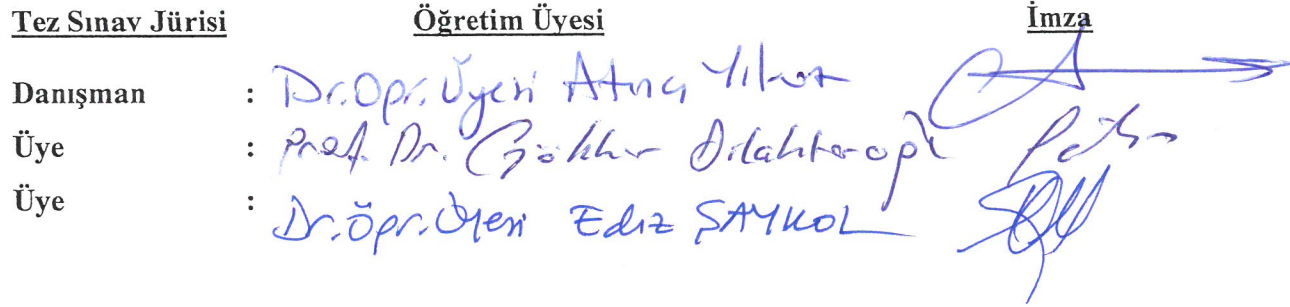 Tez Sınav Jürisi Öğretim Üyesi İmza
Danışman : Dr.Öğr.Üyesi Atınç Yılmaz
Üye : Prof. Dr. Gökhan
Üye : Dr.Öğr.Üyesi Ediz ŞAYKOL